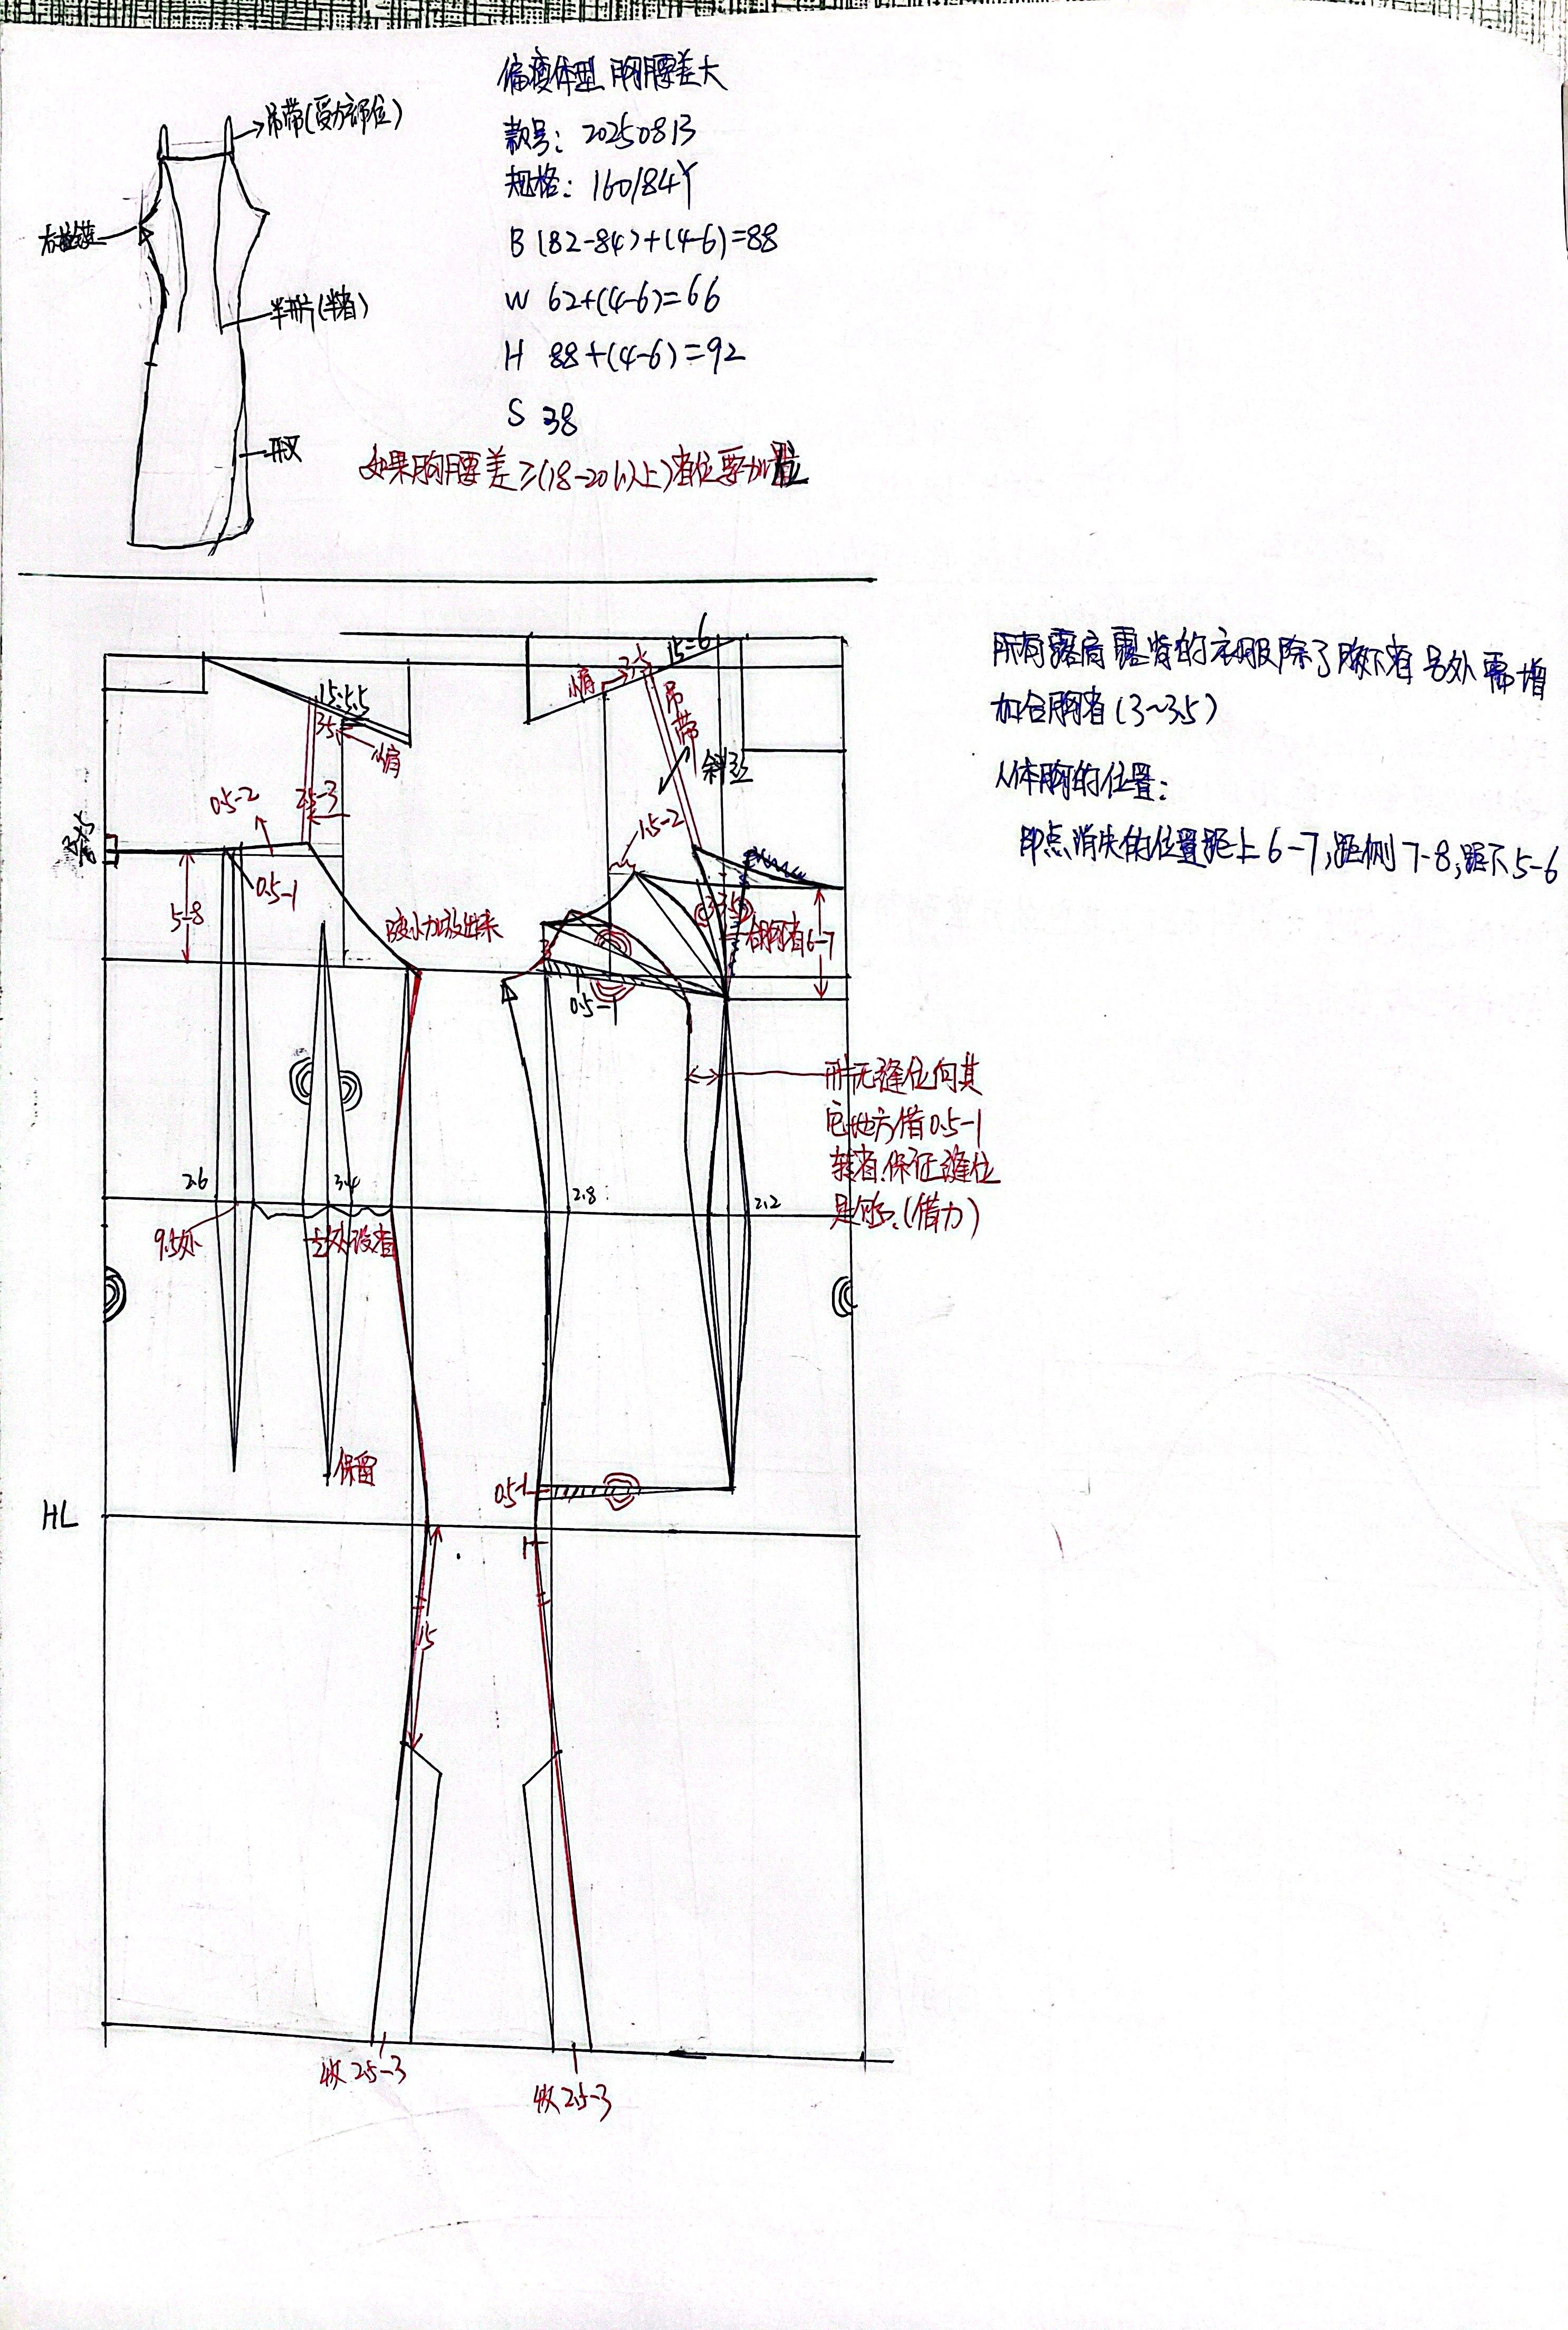 偏瘦体型 胸腰差大
款号: 20250813
规格: 160/84Y
B (82-84)+(4-6)=88
W 62+(4-6)=66
H 88+(4-6)=92
S 38
吊带(受力部位)
半开片(半省)
开叉
如果胸腰差≥(18-20以上)省位要加量
所有露肩露背的衣服除了腋下省 另外需增
加合胸省(3~3.5)
人体胸的位置:
即点消失的位置距上6-7,距侧7-8,距下5-6
15:6
15:5.5
3.5
3.5
小肩
小肩
吊带
斜丝
2.5-3
0.5-2
1.5-2
0.5-1
5-8
合胸省
6-7
0.5-1
开无缝位向其
它地方借0.5-1
转省.保证缝位
足够.(借力)
2.6
3.4
2.8
2.2
9.5处
1/2处设省
保留
0.5-1
HL
H
15
收2.5-3
收2.5-3